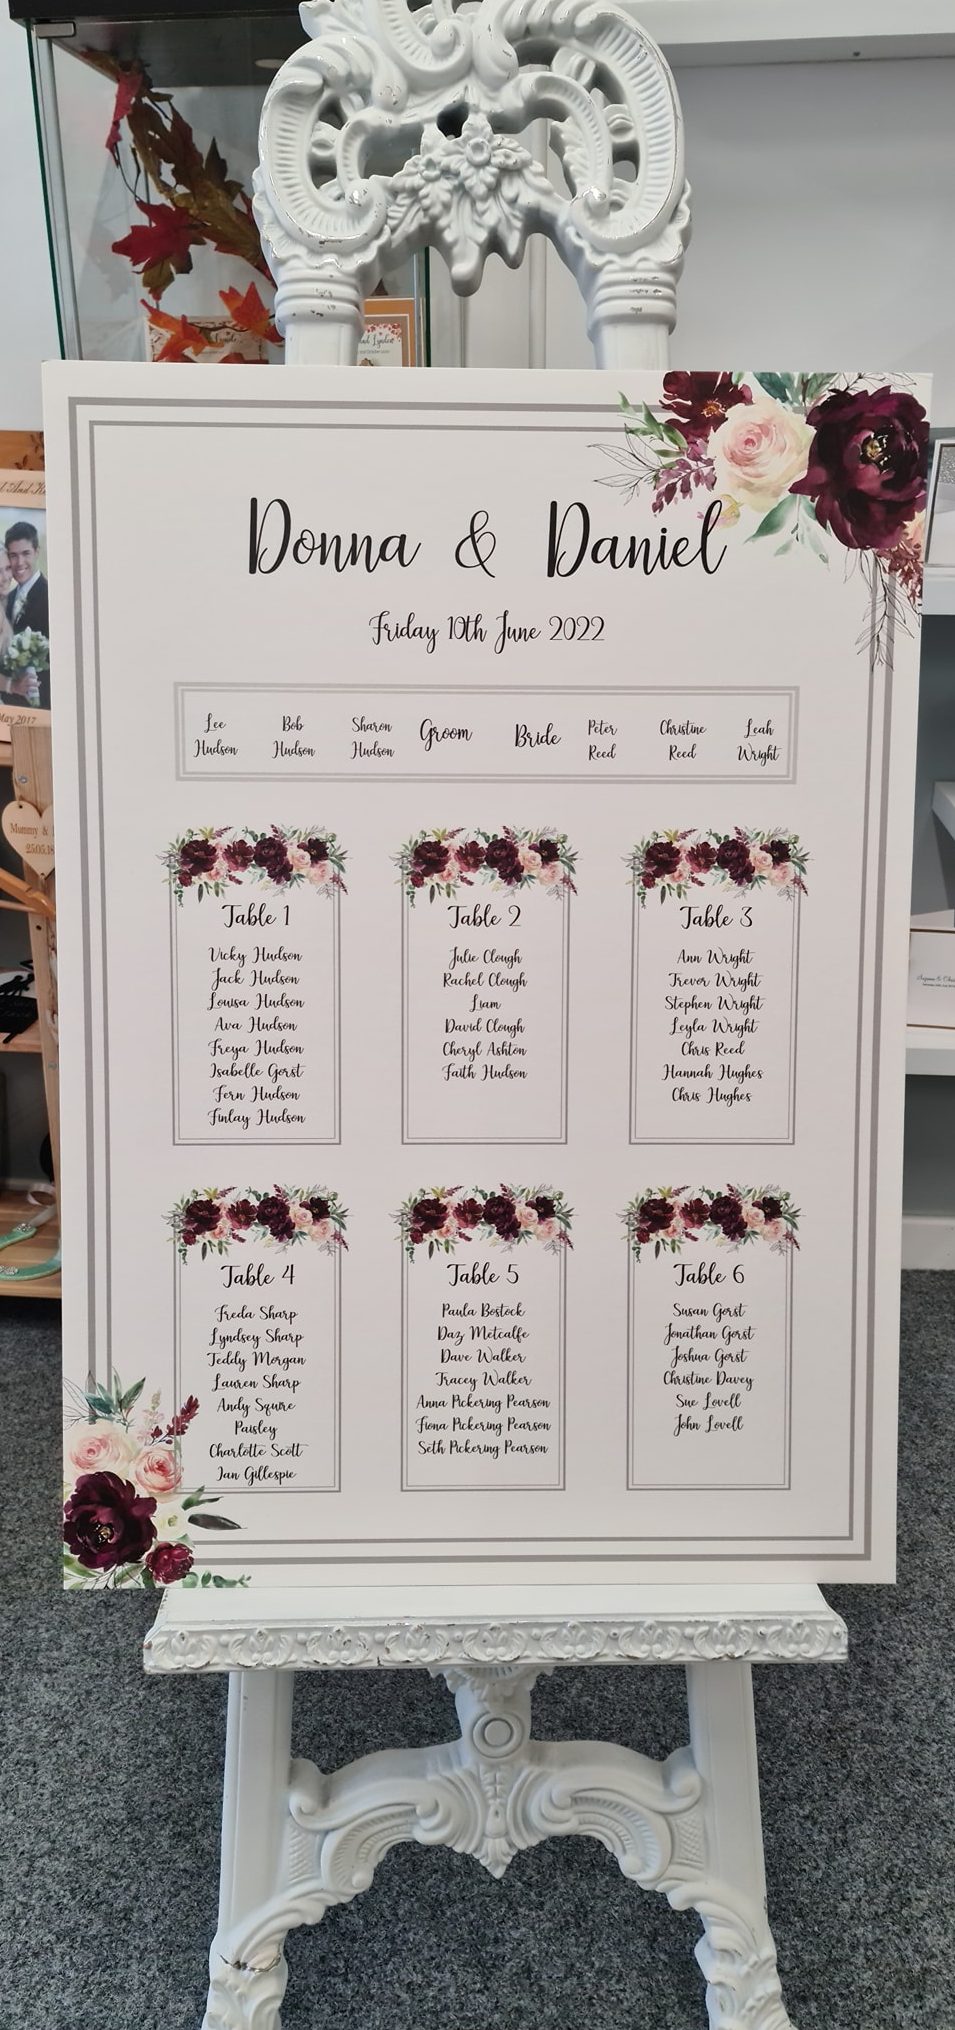 Donna & Daniel
Friday 10th June 2022
Lee Hudson
Bob Hudson
Sharon Hudson
Groom
Bride
Peter Reed
Christine Reed
Leah Wright
Table 1
Vicky Hudson
Jack Hudson
Louisa Hudson
Ava Hudson
Freya Hudson
Isabelle Gorst
Fern Hudson
Finlay Hudson
Table 2
Julie Clough
Rachel Clough
Liam
David Clough
Cheryl Ashton
Faith Hudson
Table 3
Ann Wright
Trevor Wright
Stephen Wright
Leyla Wright
Chris Reed
Hannah Hughes
Chris Hughes
Table 4
Freda Sharp
Lyndsey Sharp
Teddy Morgan
Lauren Sharp
Andy Squire
Paisley
Charlotte Scott
Ian Gillespie
Table 5
Paula Bostock
Daz Metcalfe
Dave Walker
Tracey Walker
Anna Pickering Pearson
Fiona Pickering Pearson
Seth Pickering Pearson
Table 6
Susan Gorst
Jonathan Gorst
Joshua Gorst
Christine Davey
Sue Lovell
John Lovell
May 2017
Mummy &
25.05.18